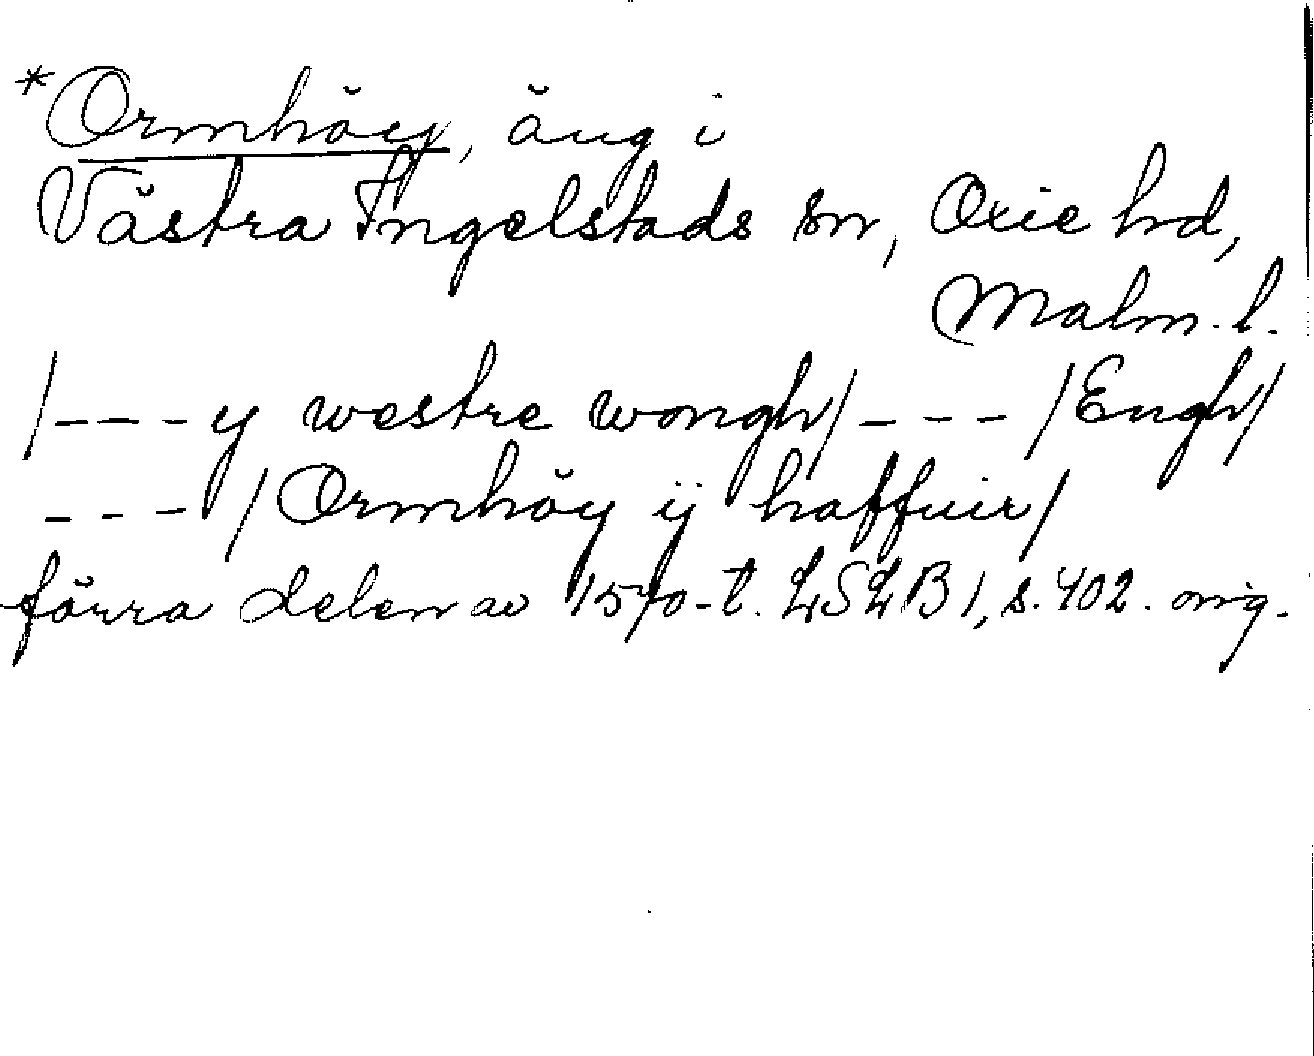 *Ormhöy, äng i
Västra Ingelstads sn, Oxie hd,
Malm. l.
/---y westre wongh/---/Engh/
---/Ormhöy ij haffuir/
förra delen av 1570-t. LSLB1, s. 402. orig.